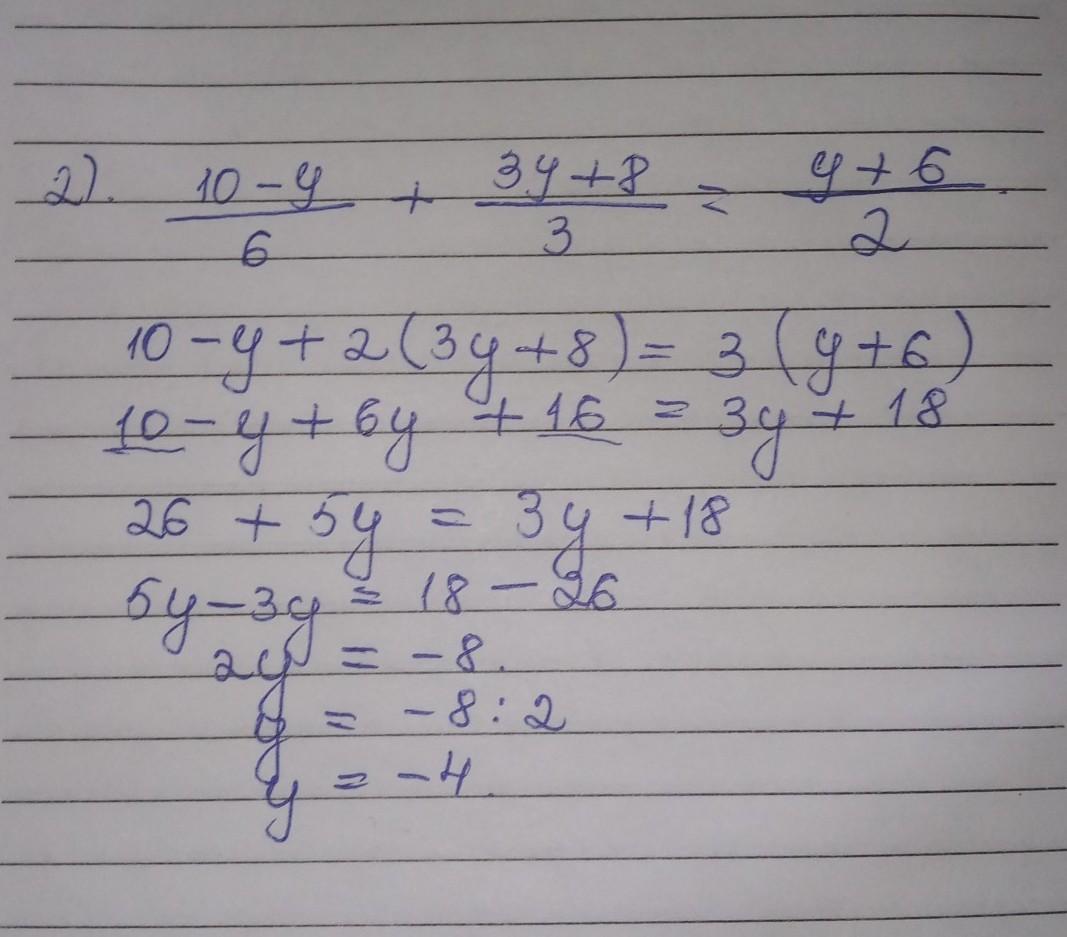 2). (10-y)/6 + (3y+8)/3 = (y+6)/2.
10-y+2(3y+8)= 3(y+6)
10-y+6y +16 = 3y+18
26 + 5y = 3y+18
5y-3y = 18-26
2y = -8.
y = -8:2
y = -4.